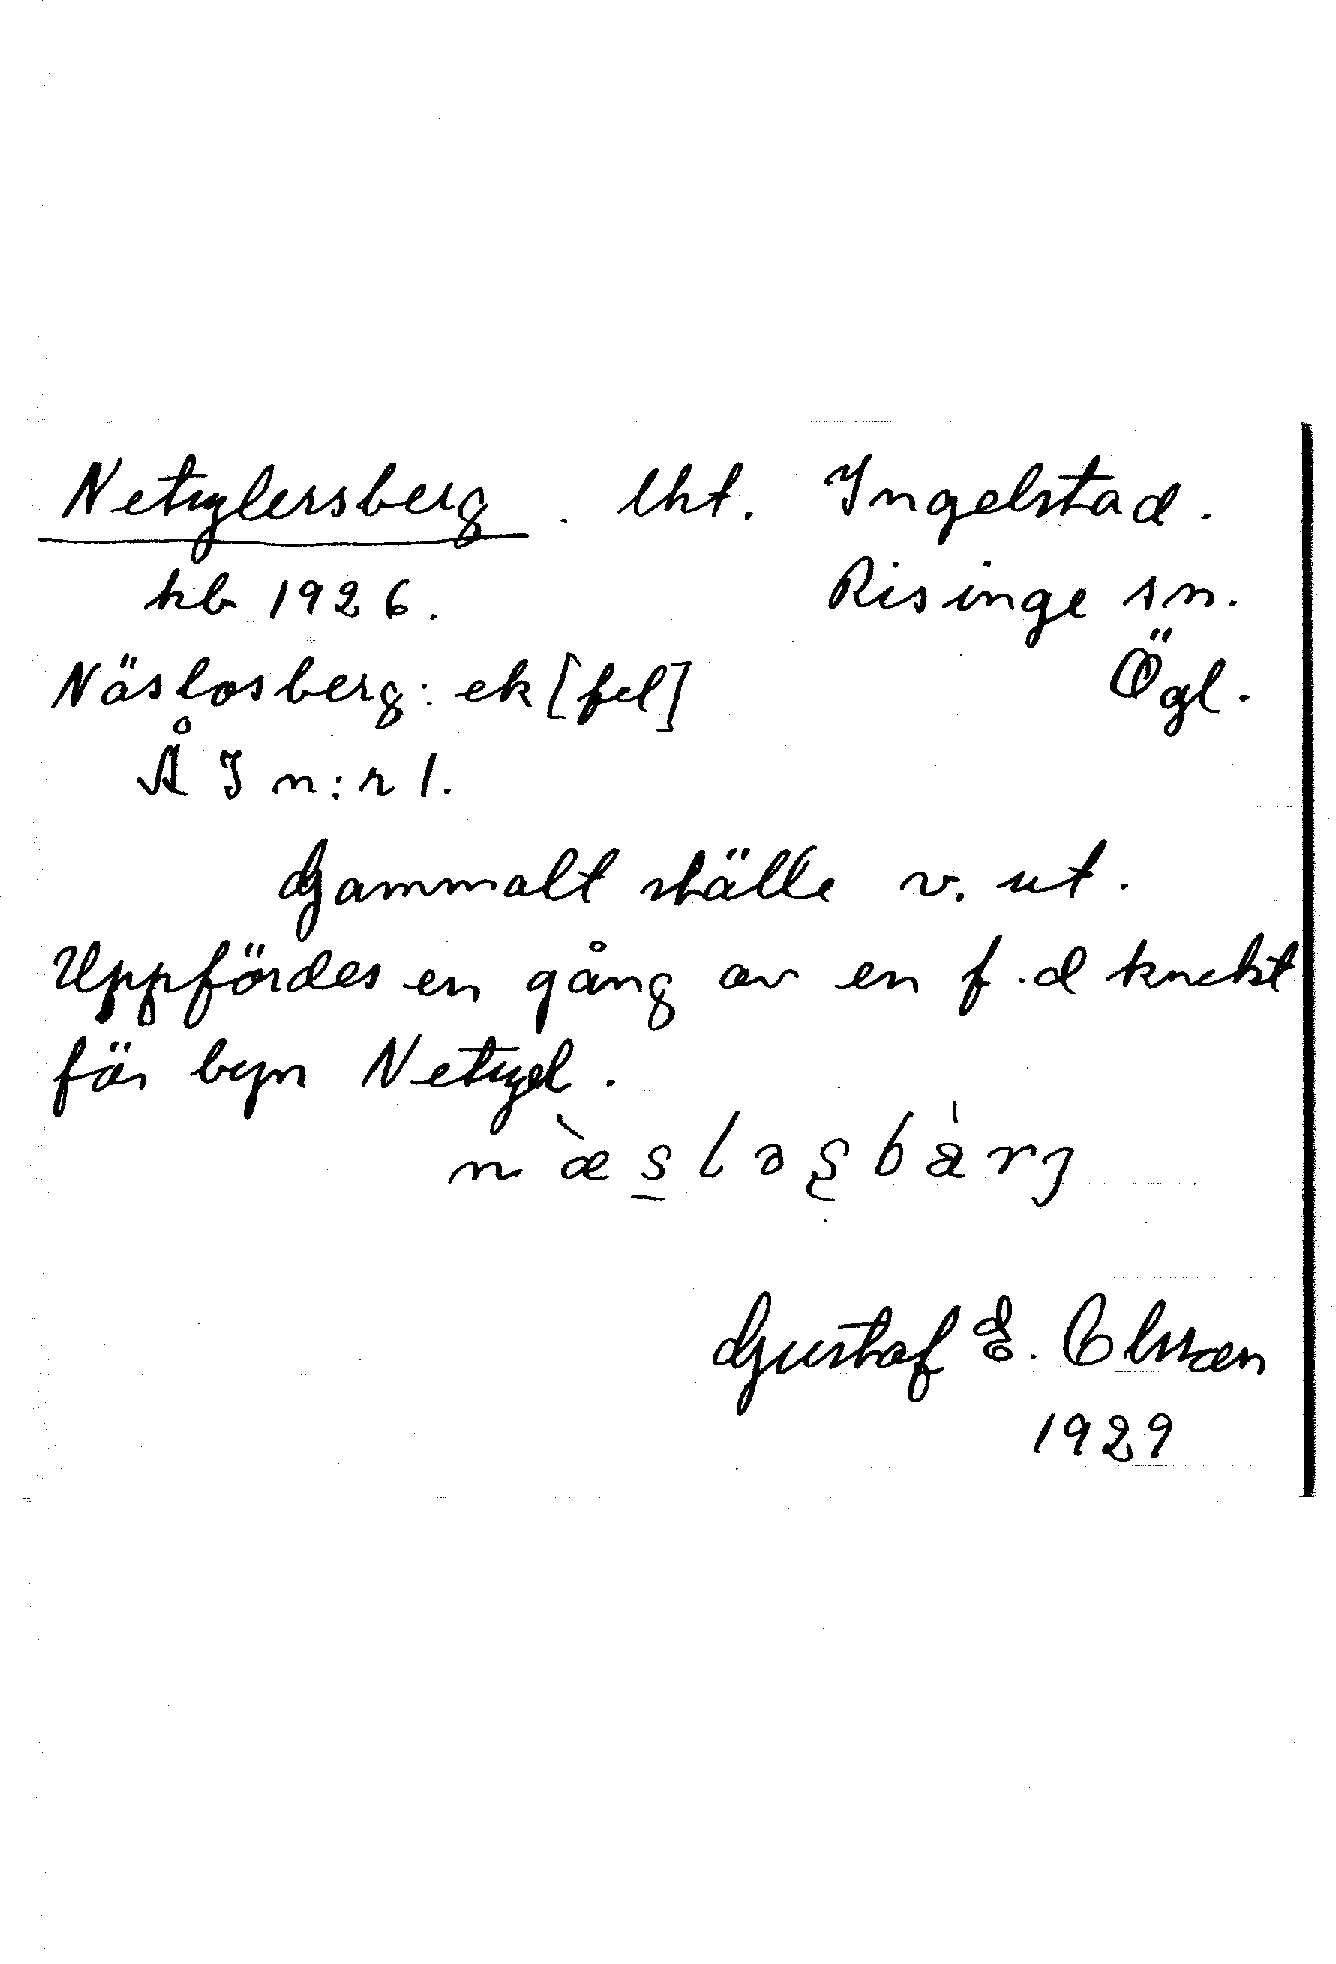 Netyglersberg. lht. Ingelstad.
kb 1926. Risinge sn.
Näslosberg: ek [fel] Ögl.
Å I n:r 1.
Gammalt ställe v. ut.
Uppfördes en gång av en f.d knekt
för byn Netygel.
næ̀sləsbàrj
Gustaf E. Olsson
1929